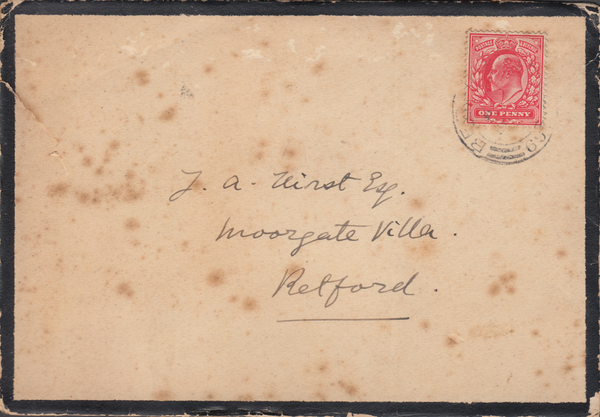 POSTAGE REVENUE
ONE PENNY
J. A. Hirst Esq.
Moorgate Villa.
Retford.